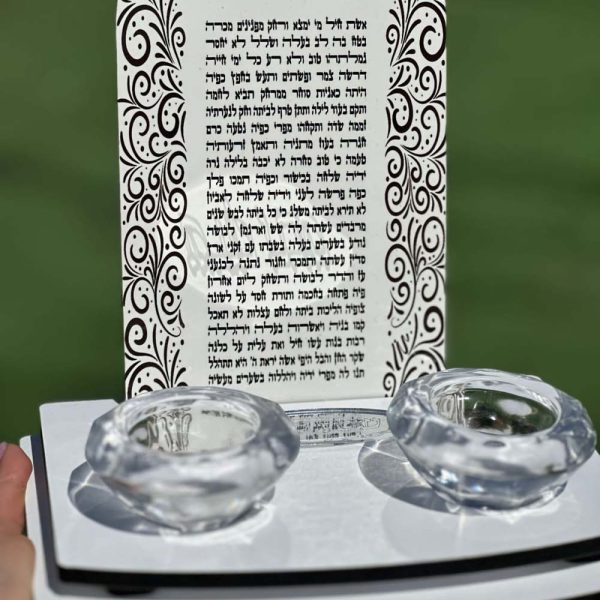 אשת חיל מי ימצא ורחק מפנינים מכרה
בטח בה לב בעלה ושלל לא יחסר
גמלתהו טוב ולא רע כל ימי חייה
דרשה צמר ופשתים ותעש בחפץ כפיה
היתה כאניות סוחר ממרחק תביא לחמה
ותקם בעוד לילה ותתן טרף לביתה וחק לנערתיה
זממה שדה ותקחהו מפרי כפיה נטעה כרם
חגרה בעוז מתניה ותאמץ זרועותיה
טעמה כי טוב סחרה לא יכבה בלילה נרה
ידיה שלחה בכישור וכפיה תמכו פלך
כפה פרשה לעני וידיה שלחה לאביון
לא תירא לביתה משלג כי כל ביתה לבש שנים
מרבדים עשתה לה שש וארגמן לבושה
נודע בשערים בעלה בשבתו עם זקני ארץ
סדין עשתה ותמכר וחגור נתנה לכנעני
עז והדר לבושה ותשחק ליום אחרון
פיה פתחה בחכמה ותורת חסד על לשונה
צופיה הליכות ביתה ולחם עצלות לא תאכל
קמו בניה ויאשרוה בעלה ויהללה
רבות בנות עשו חיל ואת עלית על כלנה
שקר החן והבל היפי אשה יראת ה' היא תתהלל
תנו לה מפרי ידיה ויהללוה בשערים מעשיה